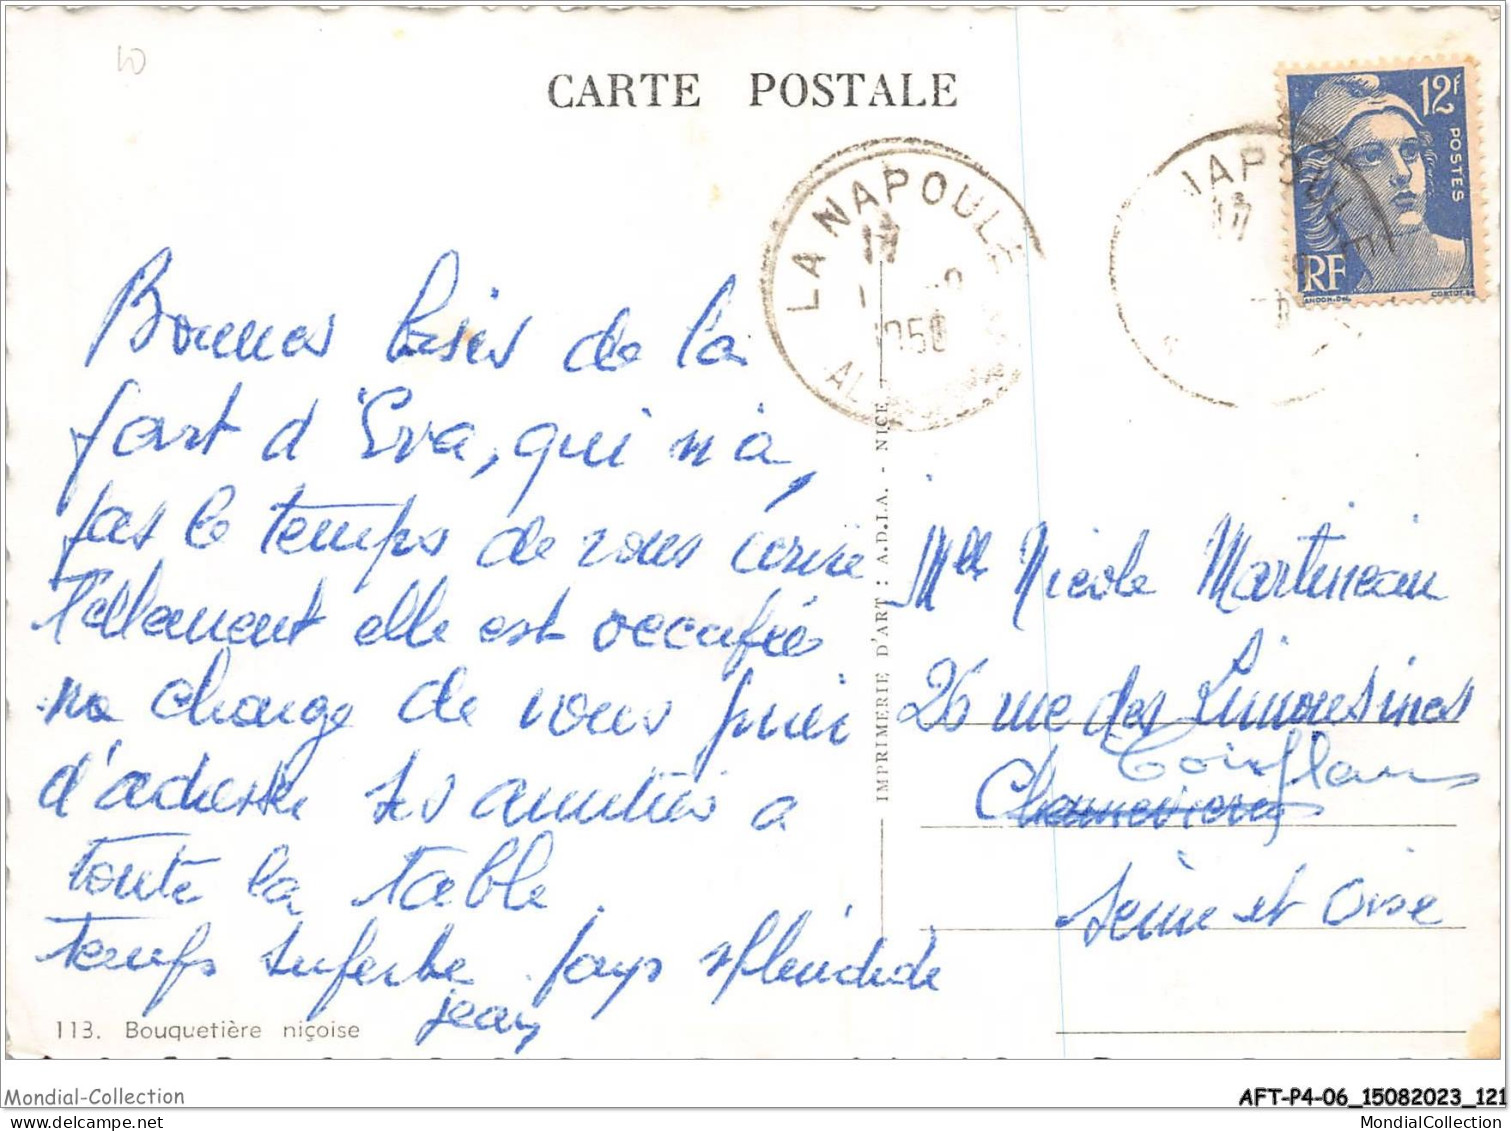 CARTE POSTALE
12F
POSTES
RF
LA NAPOULE
17
1950
AL
NAPOULE
17
Bonnes baisés de la
part d'Eva, qui n'a,
pas le temps de vous écrire
Tellement elle est occupée
me charge de vous prier
d'adresser ses amitiés a
toute la table.
Temps superbe. pays splendide
jean
Mlle Nicole Martineau
26 rue des Limousines
Conflans
Seine et Oise
IMPRIMERIE D'ART : A.D.I.A. - NICE
113. Bouquetière niçoise
Mondial-Collection
AFT-P4-06_15082023_121
MondialCollection